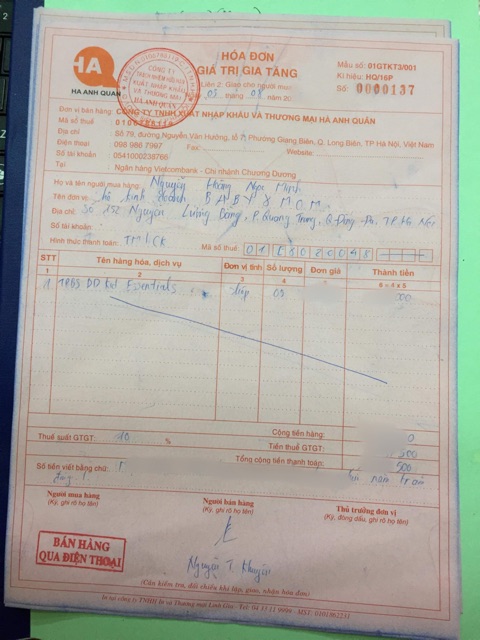 HA
HA ANH QUÂN
HÓA ĐƠN
GIÁ TRỊ GIA TĂNG
Liên 2: Giao cho người mua
05 tháng 08 năm 20
Mẫu số: 01GTKT3/001
Kí hiệu: HQ/16P
Số: 0000137
CÔNG TY
TNHH
XUẤT NHẬP KHẨU
VÀ THƯƠNG MẠI
HÀ ANH QUÂN
Đơn vị bán hàng: CÔNG TY TNHH XUẤT NHẬP KHẨU VÀ THƯƠNG MẠI HÀ ANH QUÂN
Mã số thuế
Địa chỉ Số 79, đường Nguyễn Văn Hưởng, tổ P. Giang Biên, Q. Long Biên, TP Hà Nội, Việt Nam
Điện thoại 098 986 7997 Fax: Website:
Số tài khoản 0541000238766
Tại Ngân hàng Vietcombank - Chi nhánh Chương Dương
Họ và tên người mua hàng: Nguyễn Hoàng Ngọc Minh
Đơn vị: hộ kinh doanh BABY & MOM
Địa chỉ: Số 152 Nguyễn Lương Bằng, P. Quang Trung, Q. Đống Đa, TP. Hà Nội
Số tài khoản:
Hình thức thanh toán: TM/CK Mã số thuế:
STT Tên hàng hóa, dịch vụ Đơn vị tính Số lượng Đơn giá Thành tiền
1 2 3 4 6 = 4 x 5
1 Kid Essentials 000
Cộng tiền hàng: 0
Thuế suất GTGT: 10 % Tiền thuế GTGT: 500
Tổng cộng tiền thanh toán: 500
Số tiền viết bằng chữ: năm trăm
đồng
Người mua hàng Người bán hàng Thủ trưởng đơn vị
(Ký, ghi rõ họ tên) (Ký, ghi rõ họ tên) (Ký, đóng dấu, ghi rõ họ tên)
BÁN HÀNG
QUA ĐIỆN THOẠI
Nguyễn T. Khuyên
(Cần kiểm tra, đối chiếu khi lập, giao, nhận hóa đơn)